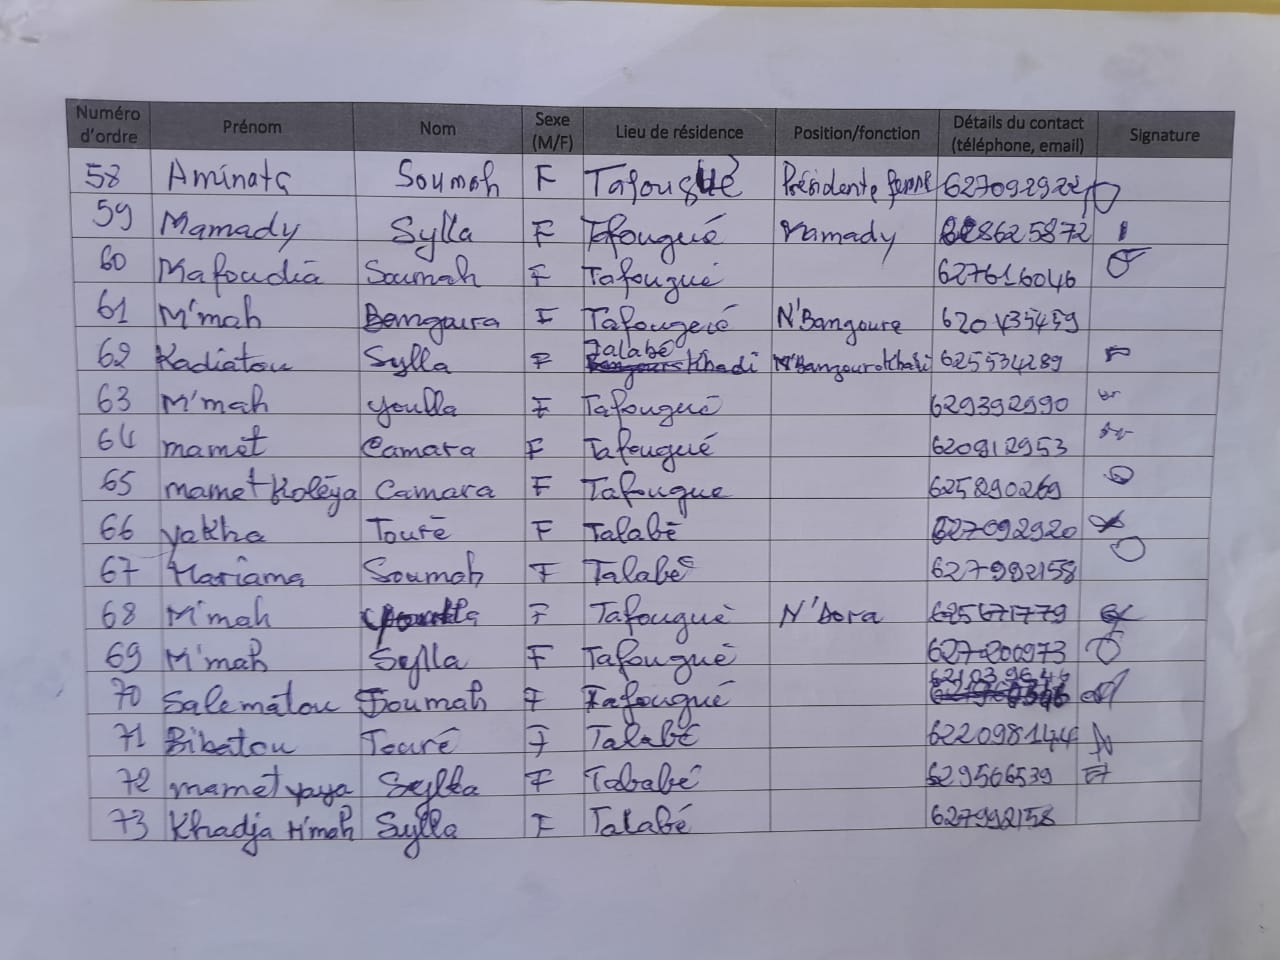 Numéro d'ordre Prénom Nom Sexe (M/F) Lieu de résidence Position/fonction Détails du contact (téléphone, email) Signature
58 Aminata Soumah F Tafougué Présidente femme 627092922
59 Mamady Sylla F Tafougué Mamady 628625872
60 Mafoudia Soumah F Tafougué 627616046
61 M'mah Bangoura F Tafougué N'Bangoura 620435459
62 Kadiatou Sylla F Talabé Khadi N'BangouraKhadi 625534289
63 M'mah youlla F Tafougué 629392990
64 mamet Camara F Tafougué 620912953
65 mamet Koléya Camara F Tafougue 625890269
66 yakha Touré F Talabé 627092920
67 Mariama Soumah F Talabé 627992158
68 M'mah F Tafougué N'Dora 625671779
69 M'mah Sylla F Tafougué 627200973
70 Salematou Soumah F Tafougué
71 Bibatou Touré F Talabé 622098144
72 mamet yaya Sylla F Tababé 629566539
73 Khadja M'mah Sylla F Talabé 627992158